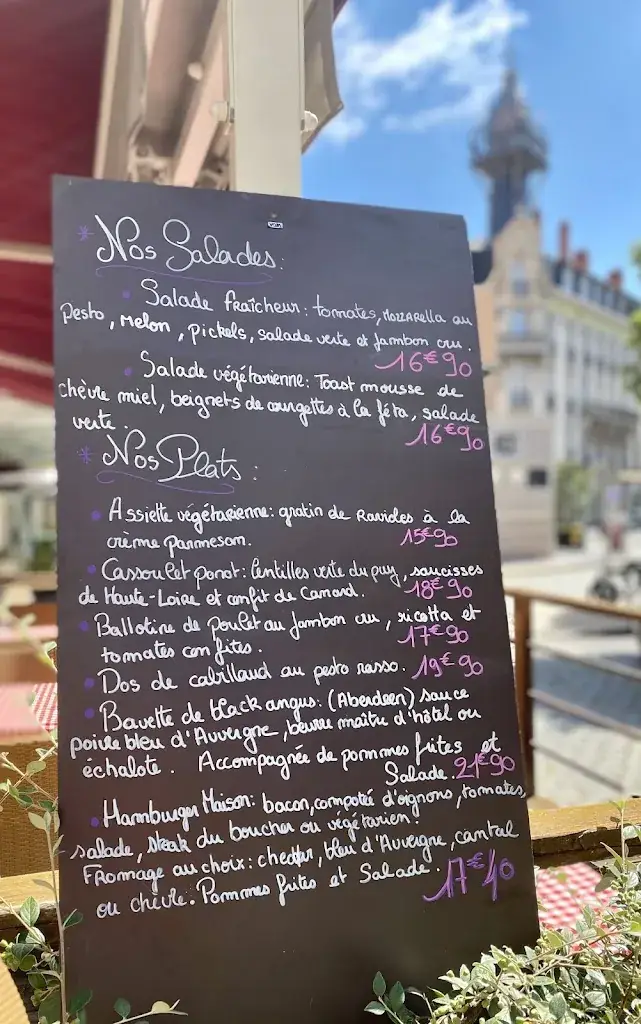 * Nos Salades :
• Salade fraîcheur : tomates, mozzarella au
Pesto, melon, pickels, salade verte et jambon cru.
16€90
• Salade végétarienne : Toast mousse de
chèvre miel, beignets de courgettes à la féta, salade
verte.
16€90
* Nos Plats :
• Assiette végétarienne : gratin de Ravioles à la
crème parmesan. 15€90
• Cassoulet ponot : lentilles verte du puy, saucisses
de Haute-Loire et confit de Canard. 18€90
• Ballotine de Poulet au jambon cru, ricotta et
tomates confites. 17€90
• Dos de cabillaud au pesto rosso. 19€90
• Bavette de black angus : (Aberdeen) sauce
poivre bleu d'Auvergne, beurre maître d'hôtel ou
échalote. Accompagnée de pommes frites et
Salade. 21€90
• Hamburger Maison : bacon, compotée d'oignons, tomates,
salade, steak du boucher ou végétarien
Fromage au choix : cheddar, bleu d'Auvergne, cantal
ou chèvre. Pommes frites et Salade. 17€40